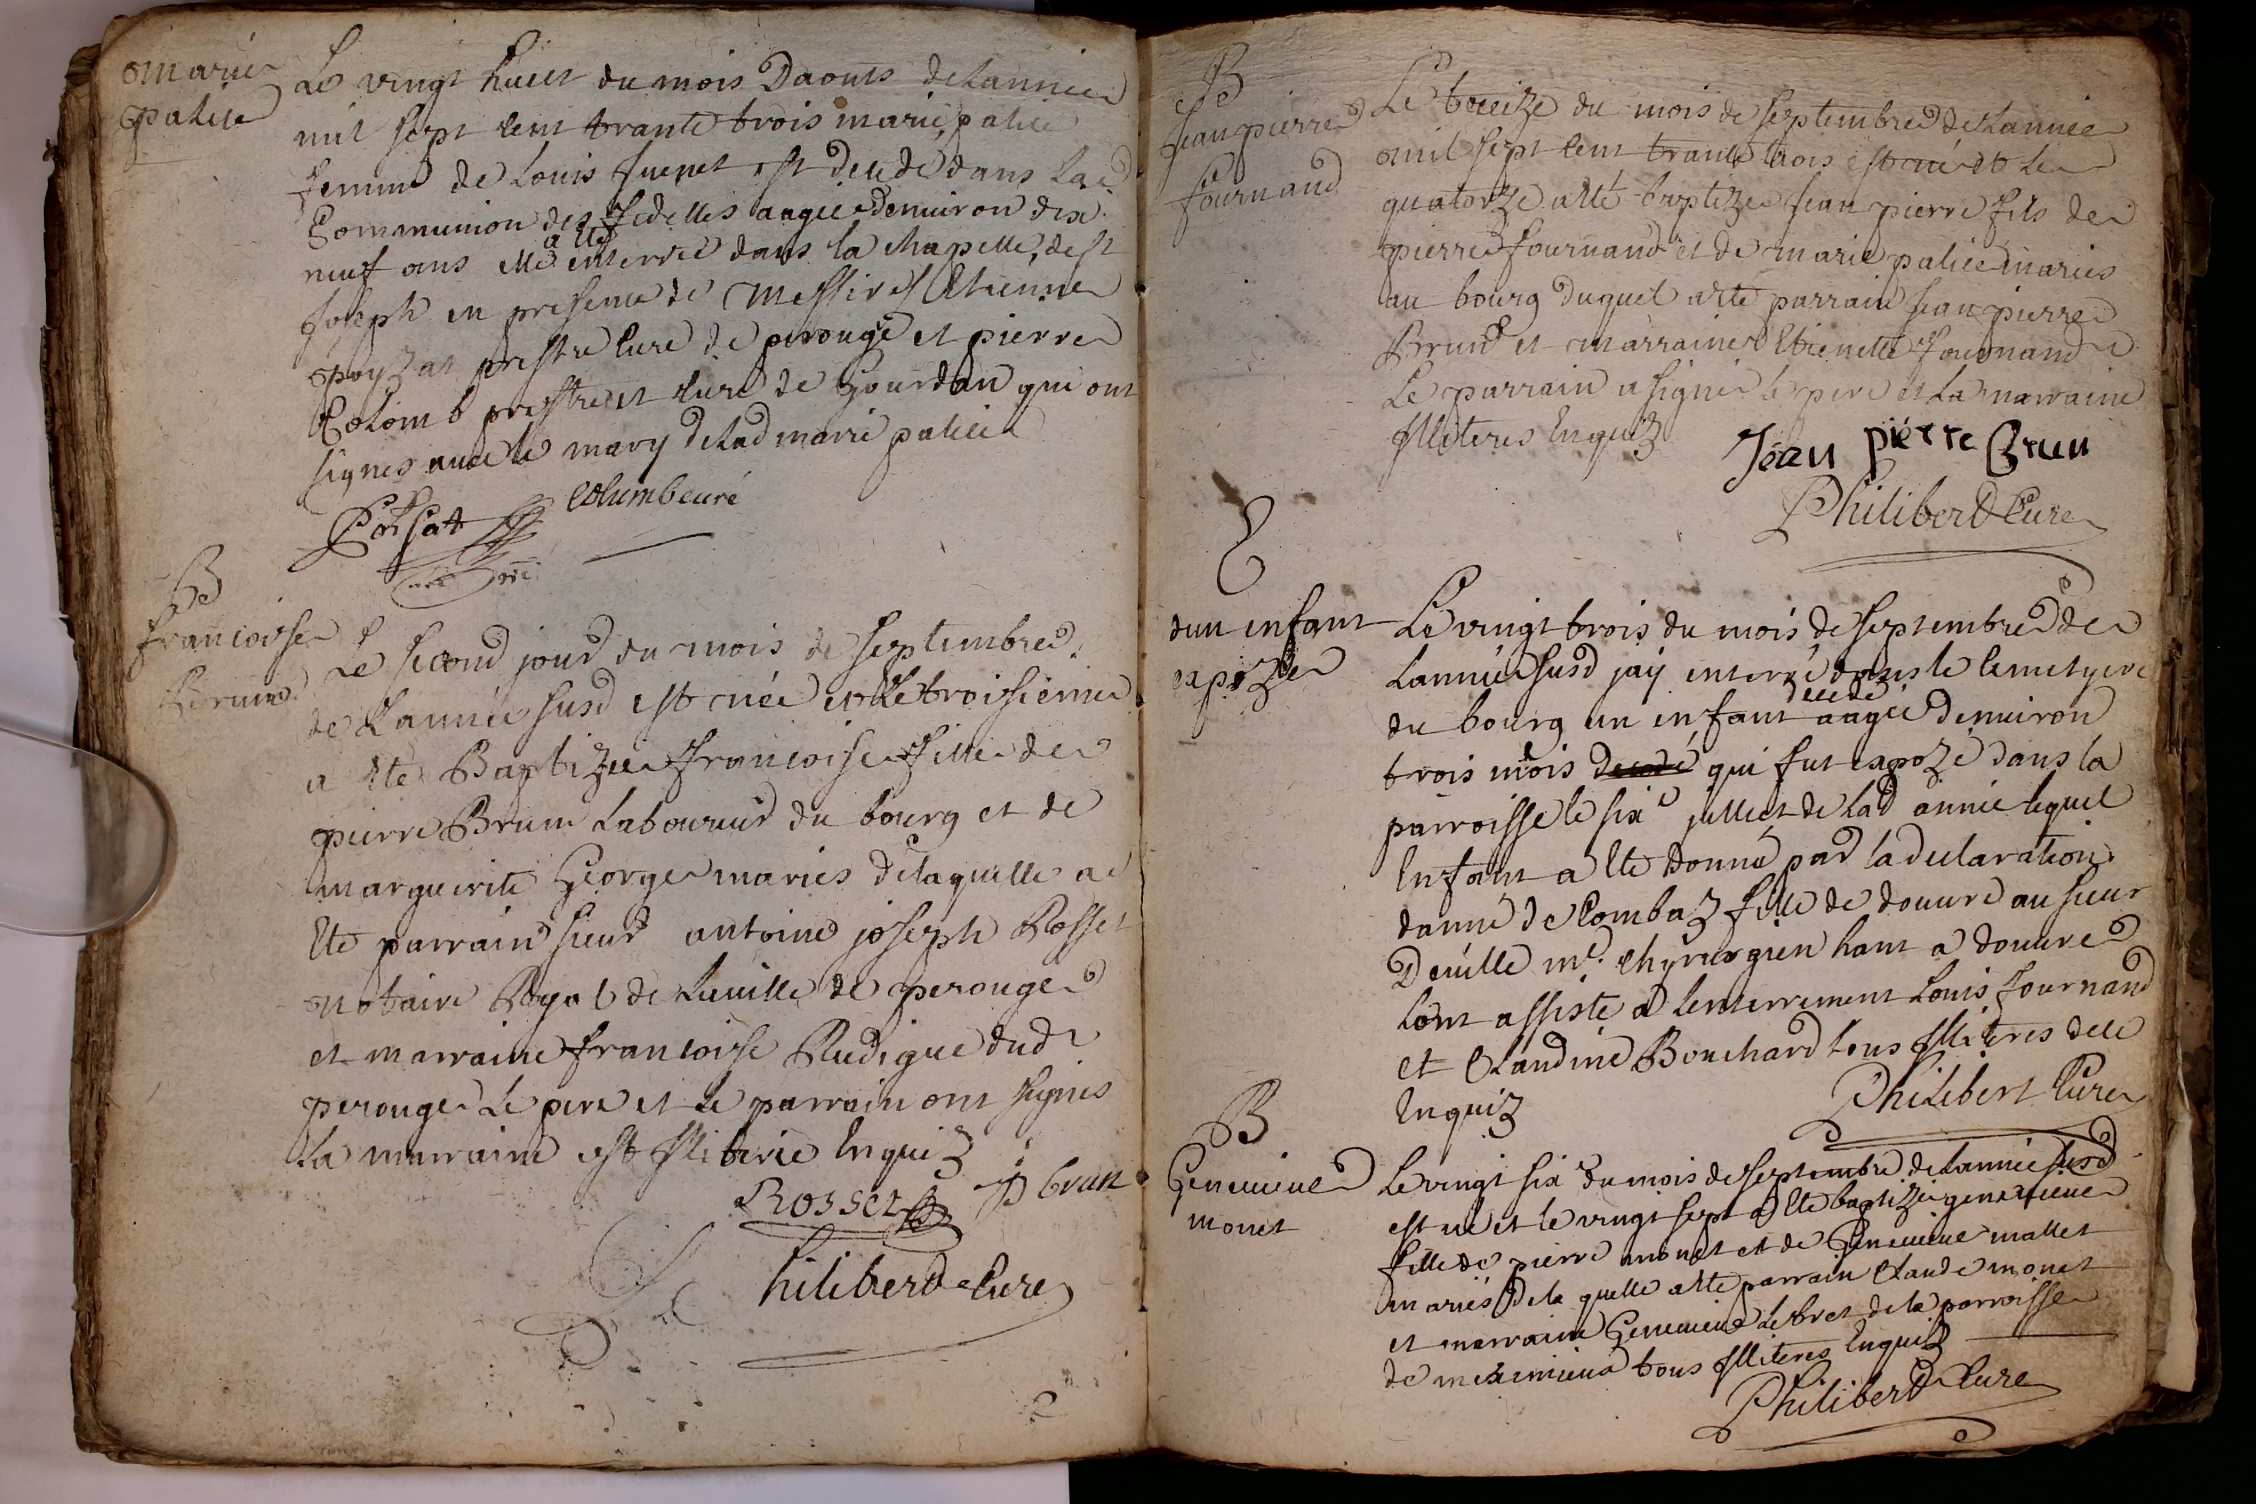 marie
palice
Le vingt huict du mois Daouts de Lannee
mil sept cent trante trois marie palice
femme de Louis est decedé dans La
Communion des fidelles aagée denuiron dix
neuf ans elle a ete enterrée dans la chapelle de st
Joseph en presence de Messires Etienne
poyzat prestre Cure de perouge et pierre
Colomb prestre et cure de Gourdan qui ont
signes auec le mary de Lad marie palice
Poisat Columb curé
B
francoise
Brune
Le second jour du mois de septembre
de Lannée susd est née et Le troissieme
a ete Baptizée francoise fille de
pierre Brun Laboureur du bourg et de
marguerite George maries de laquelle a
Ete parrain sieur antoine joseph Rosset
notaire Royal de La uille de perouge
et marraine francoise Rudigue dud
perouge Le pere et Le parrain ont signes
La marraine est illiterée Enquiz
ROSSET p brun
Philiberd Cure
B
Jean pierre
fournand
Le treize du mois de septembre de Lannee
mil sept cent trante trois est né et Le
quatorze a ete baptize Jean pierre fils de
pierre fournand et de marie palice maries
au bourg duquel a ete parrain Jean pierre
Brun et marraine Etienette fournand
Le parrain a signé le pere et La marraine
illiteres Enquiz
Jean pierre Brun
Philiberd Cure
E
dun enfant
expozé
Le vingt trois du mois de septembre de
Lannée susd jay enterré dans le Cimetyere
du bourg un enfant decedé aagé denuiron
trois mois decedé qui fut expozé dans la
parroisse le six e juillet de Lad année lequel
Enfant a ete donné par la declaration
danne de Combaz fille de douure au sieur
Deuille me. chyrurgien hant a douure
Lont assisté a Lenterrement Louis fournand
et Claudine Bouchard tous illiteres de ce
Enquiz
Philibert Cure
B
Geneuieue
monet
Le vingt six du mois de septembre de Lannee susd
est né et le vingt sept a Ete baptizé geneuieue
fille de pierre monet et de Geneuieue mallet
mariés De la quelle a ete parrain Claude monet
et marraine Geneuieue Lebret de la parroisse
de meximieux tous illiteres Enquiz
Philiberd Cure